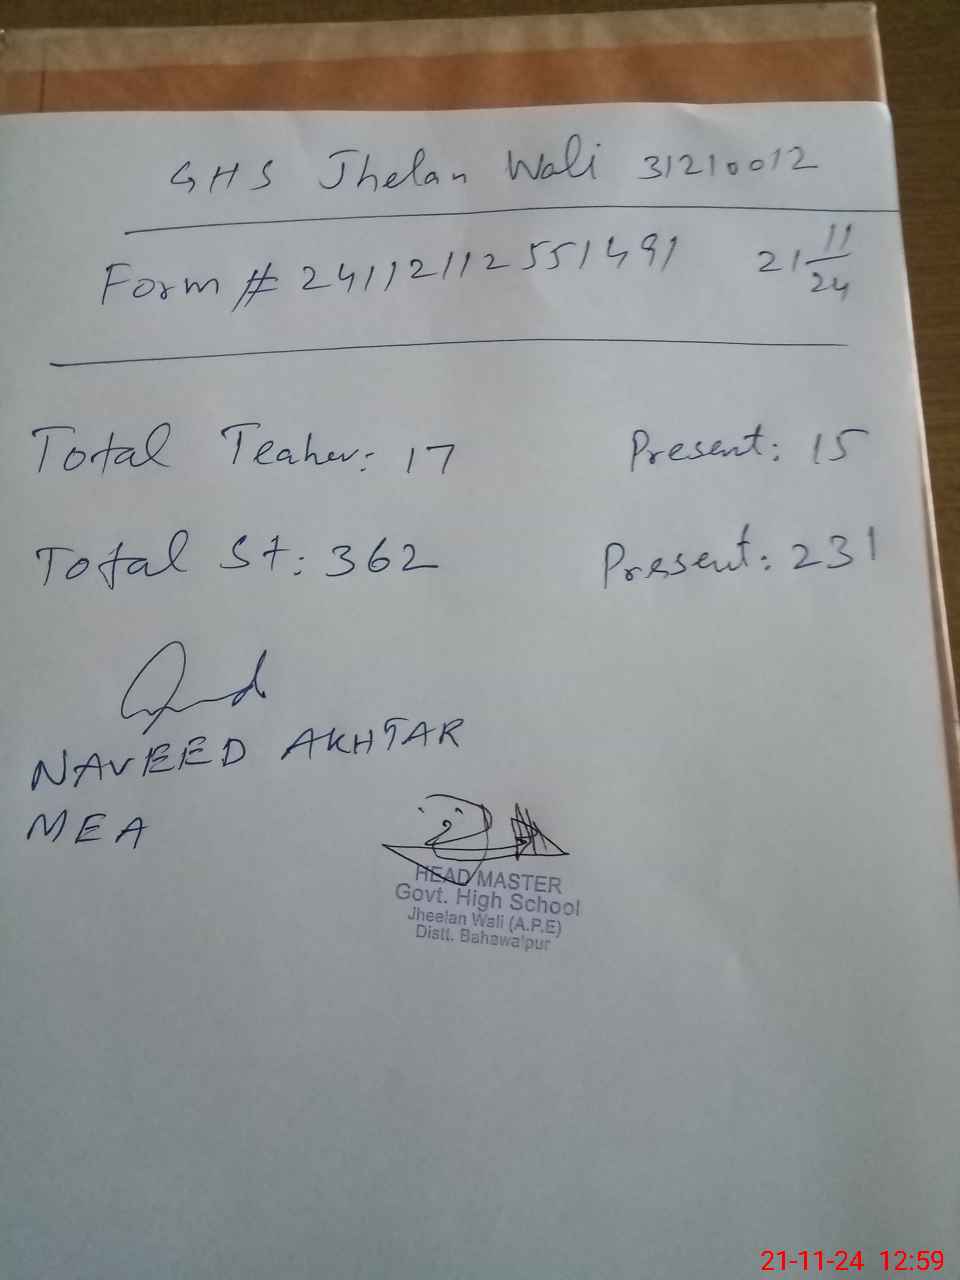 GHS Jhelan Wali 31210012
Form # 24112112551491 21 11/24
Total Teaher: 17 Present: 15
Total St: 362 Present: 231
NAVEED AKHTAR
MEA
HEAD MASTER
Govt. High School
Jheelan Wali (A.P.E)
Distt. Bahawalpur
21-11-24 12:59